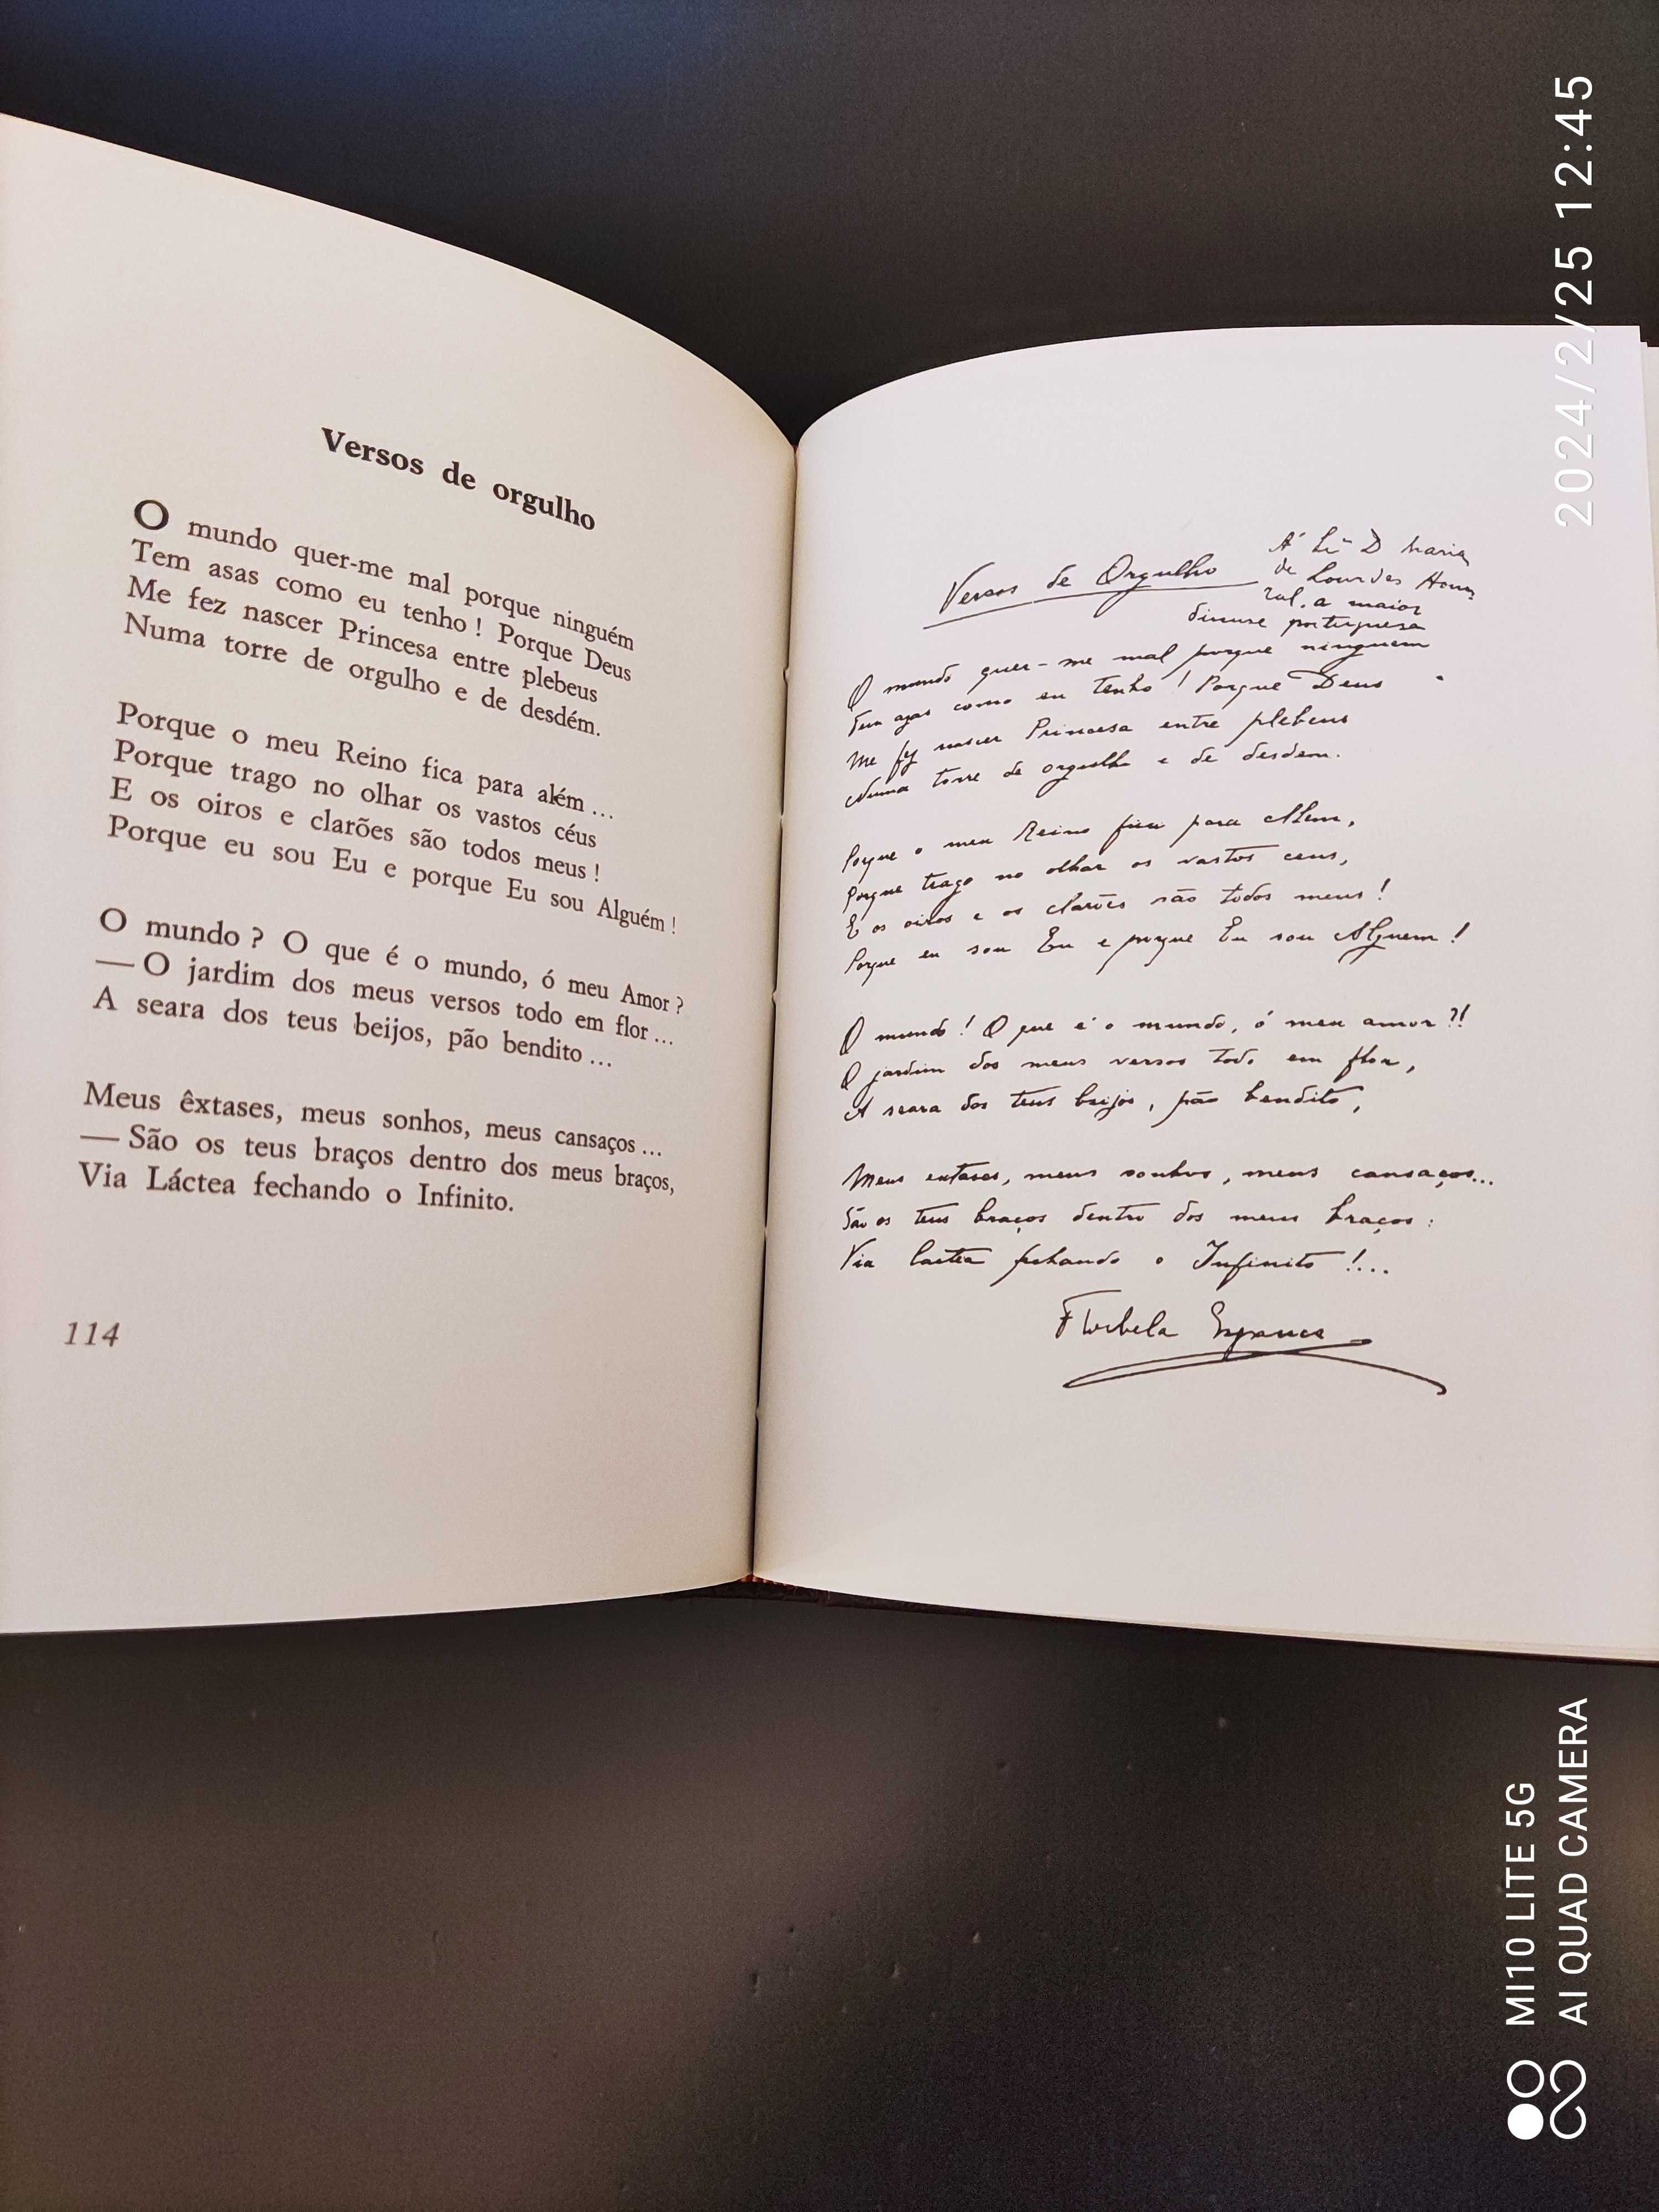 Versos de orgulho
O mundo quer-me mal porque ninguém
Tem asas como eu tenho ! Porque Deus
Me fez nascer Princesa entre plebeus
Numa torre de orgulho e de desdém.
Porque o meu Reino fica para além ...
Porque trago no olhar os vastos céus
E os oiros e clarões são todos meus !
Porque eu sou Eu e porque Eu sou Alguém !
O mundo ? O que é o mundo, ó meu Amor ?
— O jardim dos meus versos todo em flor ...
A seara dos teus beijos, pão bendito ...
Meus êxtases, meus sonhos, meus cansaços ...
— São os teus braços dentro dos meus braços,
Via Láctea fechando o Infinito.
114
Versos de Orgulho
D Maria
de Lourdes
a maior
portuguesa
O mundo quer-me mal porque ninguem
Tem azas como eu tenho ! Porque Deus
Me fez nascer Princesa entre plebeus
Numa torre de orgulho e de desdem.
Porque o meu Reino fica para Alem,
Porque trago no olhar os vastos ceus,
E os oiros e os clarões são todos meus !
Porque eu sou Eu e porque Eu sou Alguem !
O mundo ! O que é o mundo, ó meu amor ?!
O jardim dos meus versos todo em flor,
A seara dos teus beijos, pão bendito,
Meus extases, meus sonhos, meus cansaços...
São os teus braços dentro dos meus braços :
Via lactea fechando o Infinito !...
Florbela Espanca
2024/2/25 12:45
MI10 LITE 5G
AI QUAD CAMERA